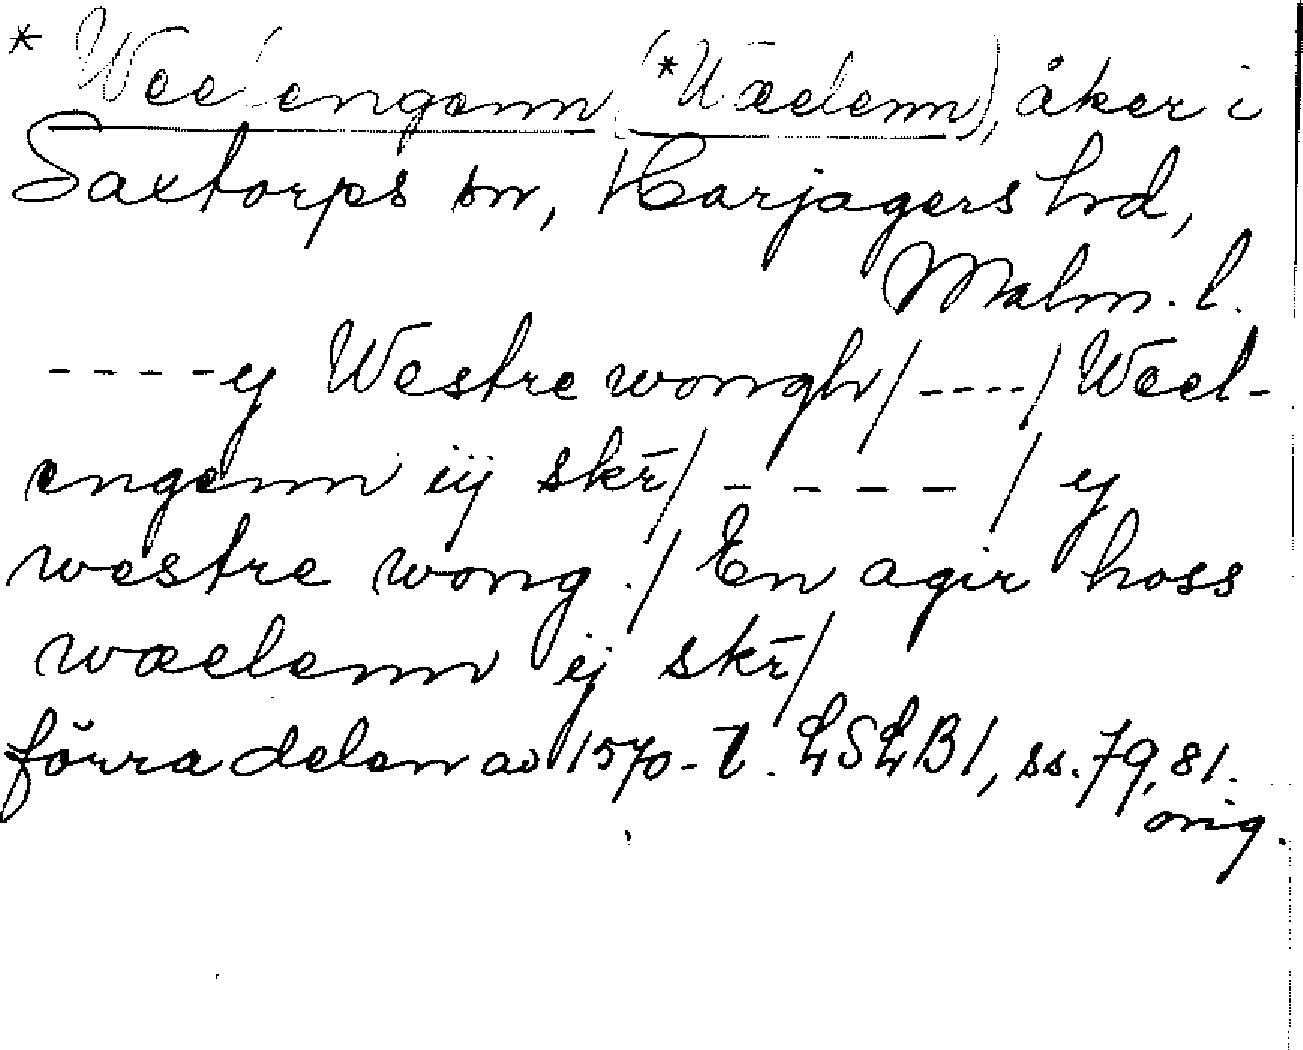 * Weelengenn (*Wæelenn), åker i
Saxtorps sn, Harjagers hd,
Malm. l.
----y Westre wongh/----/Weel-
engenn iij skr̄/ - - - - / y
westre wong ./ En agir hoss
wæelenn ij skr̄/
förra delen av 1570-t. LSLB1, ss. 79, 81.
orig.